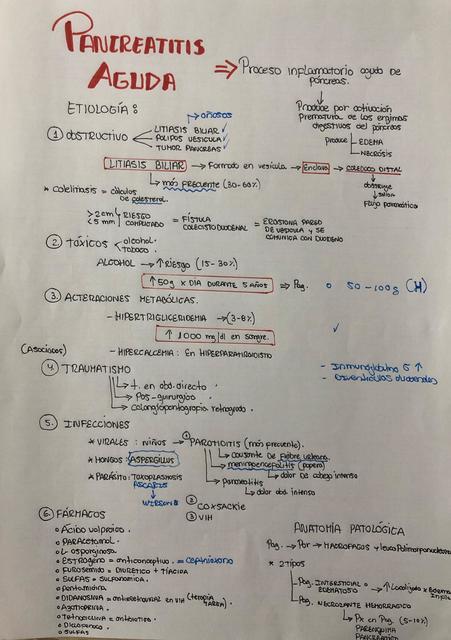 PANCREATITIS
AGUDA
⇒ Proceso inflamatorio agudo de
páncreas.
Produce por activación
prematura de las enzimas
digestivas del páncreas
Produce
EDEMA
NECROSIS
ETIOLOGÍA:
① obstructivo
LITIASIS BILIAR
POLIPOS VESICULA
TUMOR PANCREAS
LITIASIS BILIAR → Formado en vesícula → Enclava → COLEDOCO DISTAL
más frecuente (30-60%)
obstruye
salida
Flujo pancreático
* colelitiasis = cálculos
de colesterol.
>2cm
<5mm
RIESGO
COMPLICADO = FÍSTULA
COLECISTODUODENAL = EROSIONA PARED
DE VESICULA Y SE
COMUNICA CON DUODENO
② TÓXICOS
alcohol.
TABACO
ALCOHOL → ↑ RIESGO (15-30%)
↑ 50g x DIA DURANTE 5 AÑOS ⇒ Pag. o 50-100g (H)
③ ALTERACIONES METABÓLICAS.
- HIPERTRIGLICERIDEMIA → (3-8%)
↑ 1000 mg/dl en sangre.
- HIPERCALCEMIA: EN HIPERPARATIROIDISTO
- Inmunoglobulina G ↑
④ TRAUMATISMO
t. en abd. directo
Pos-quirúrgico
colangiopancreatografia retrograda.
⑤ INFECCIONES
* VIRALES: NIÑOS → ① PAROTIDITIS (más frecuente).
causante de fiebre urleana
meningoencefalitis (papera)
dolor de cabeza intenso
Pancreatitis
dolor abd intenso
* HONGOS: ASPERGILLUS
* PARÁSITO: TOXOPLASMOSIS
ASCARIS
② COXSACKIE
③ VIH
⑥ FÁRMACOS
o Ácido valproico.
o PARACETAMOL.
o L-asparginasa.
o ESTRÓGENO = anticonceptivo.
o FUROSEMIDO = DIURÉTICO + TIACIDA
o SULFAS = SULFONAMIDA.
o Pentamidina
o DIDANOSINA = antirretroviral en VIH (terapia TARGA)
o Azatioprina.
o Tetraciclina = antibiotico.
o Diclofenaco.
o SULFAS
ANATOMÍA PATOLÓGICA
Pag. → Por → MACROFAGOS y leuco Polimorfonucleares
* 2 TIPOS
Pag. INTERSTICIAL O
EDEMATOSO → ↑ Localizado
Pag. NECROZANTE HEMORRAGICO
Px en Pag. (5-10%)
PARENQUIMA